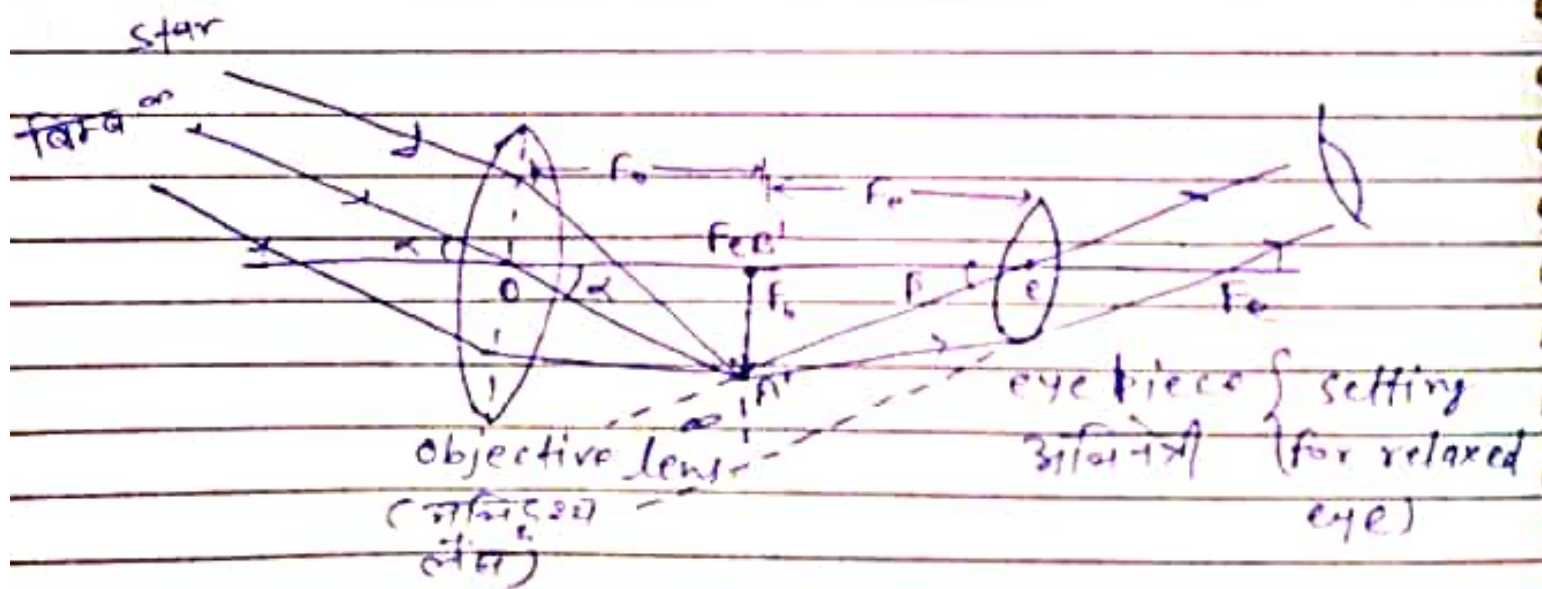 star
बिम्ब ∞
Fo
Fe
α
O
α
Fo
A'
β
e
Fe
∞
Objective lens
(अभिदृश्य
लैंस)
eye piece { setting
अभिनेत्री (for relaxed
eye)